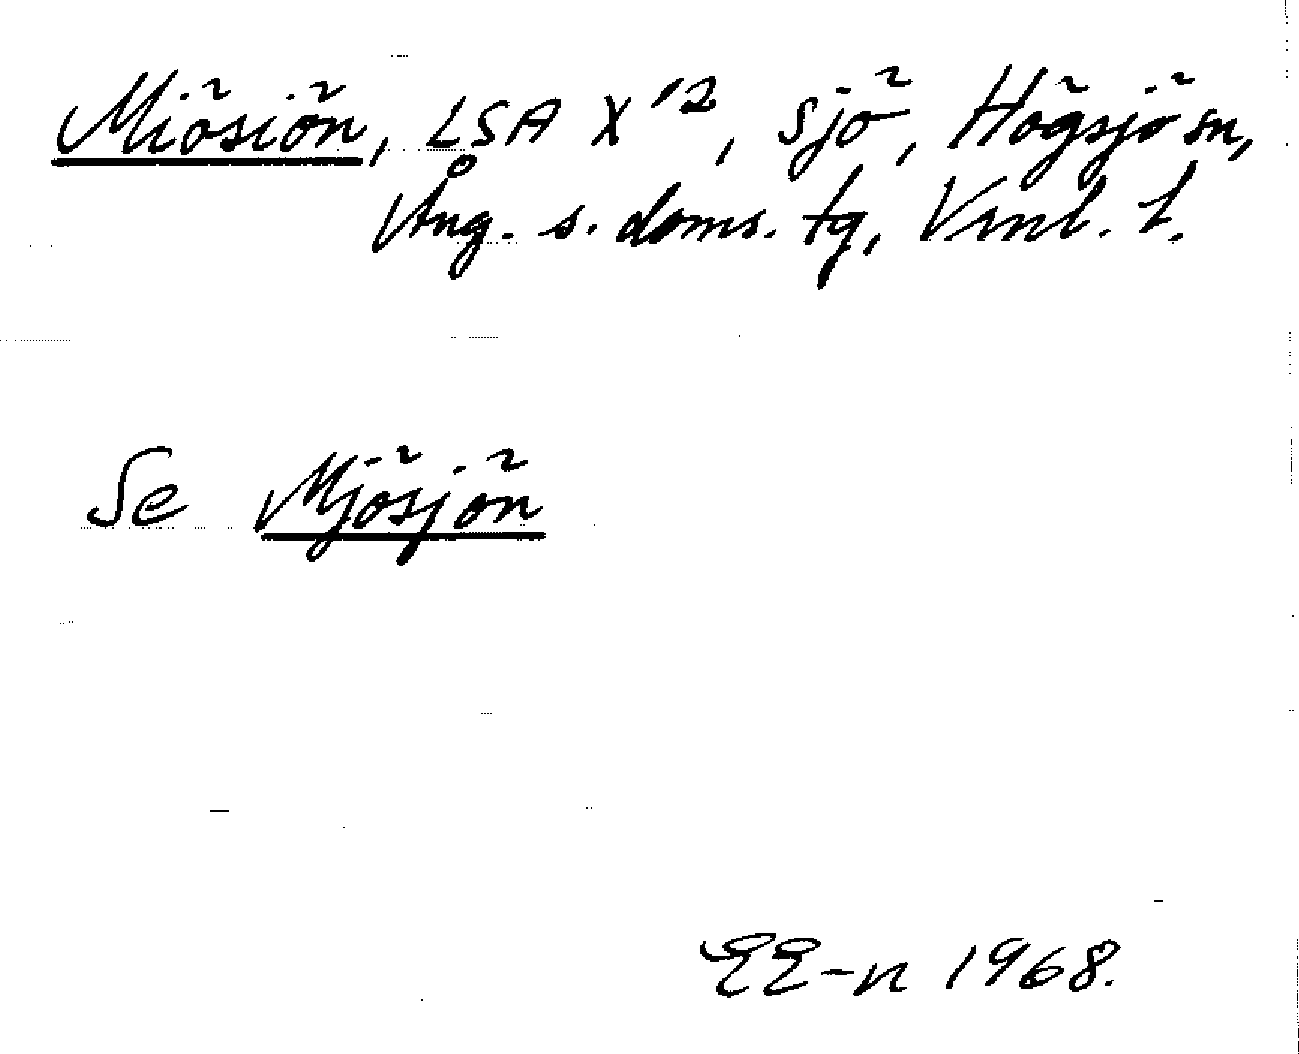 Miösiön, LSA X'2, sjö, Högsjö sn,
Ång. s. doms. tg, Vrnl. l.
Se Mjösjön
EE-n 1968.